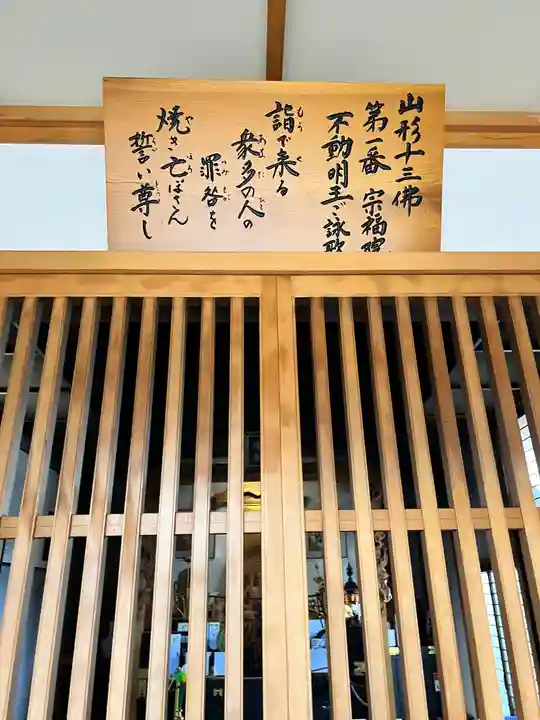 山形十三佛
第一番 宗福院
不動明王ご詠歌
詣で来る
衆多の人の
罪咎を
焼き亡ぼさん
誓い尊し